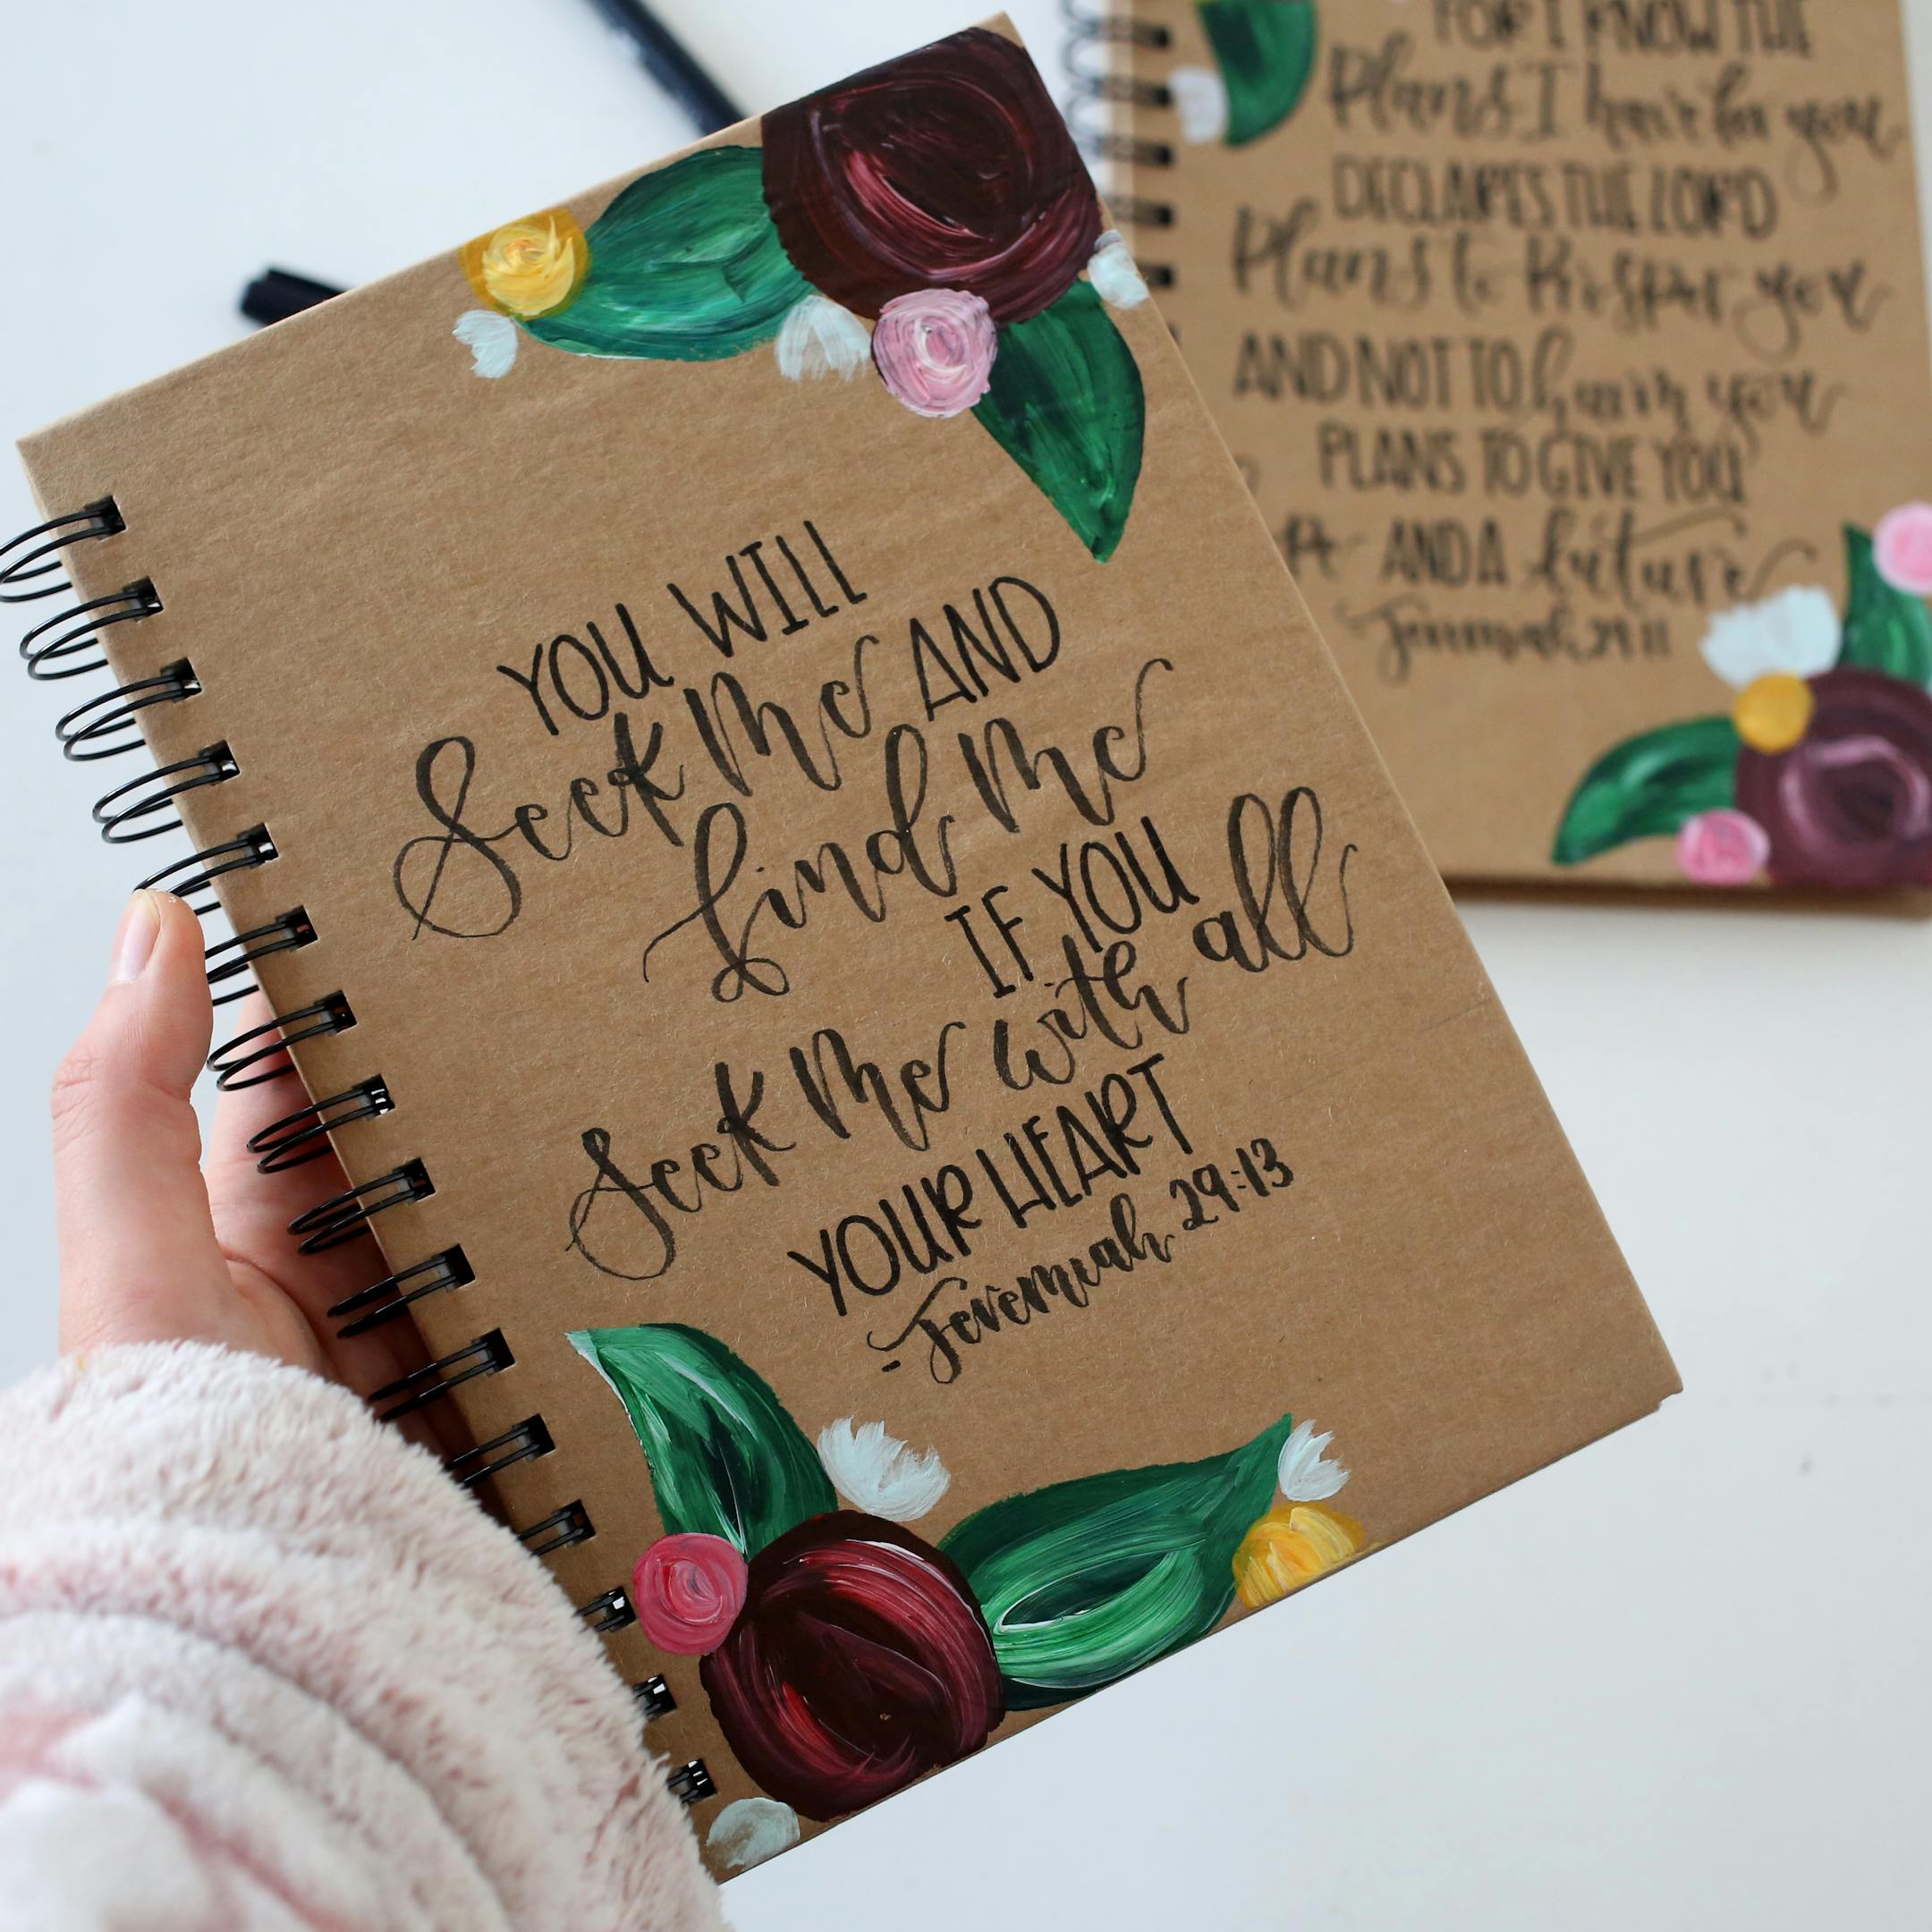 YOU WILL
Seek Me AND
find Me
IF YOU
Seek Me with all
YOUR HEART
- Jeremiah 29:13
FOR I KNOW THE
Plans I have for you
DECLARES THE LORD
Plans to Prosper you
AND NOT TO harm you
PLANS TO GIVE YOU
AND A future
Jeremiah 29 11